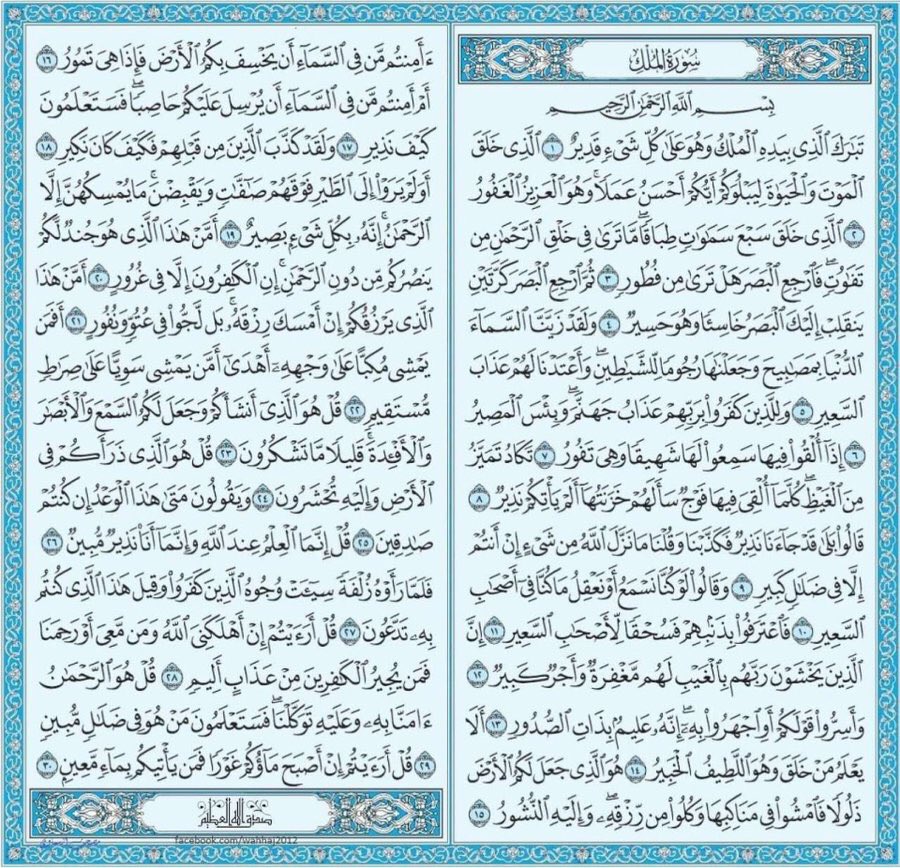 سُورَةُ المُلْكِ
بِسْمِ اللَّهِ الرَّحْمَٰنِ الرَّحِيمِ
تَبَٰرَكَ الَّذِى بِيَدِهِ الْمُلْكُ وَهُوَ عَلَىٰ كُلِّ شَىْءٍ قَدِيرٌ ١ الَّذِى خَلَقَ
الْمَوْتَ وَالْحَيَوٰةَ لِيَبْلُوَكُمْ أَيُّكُمْ أَحْسَنُ عَمَلًا ۚ وَهُوَ الْعَزِيزُ الْغَفُورُ
٢ الَّذِى خَلَقَ سَبْعَ سَمَٰوَٰتٍ طِبَاقًا ۖ مَّا تَرَىٰ فِى خَلْقِ الرَّحْمَٰنِ مِن
تَفَٰوُتٍ ۖ فَارْجِعِ الْبَصَرَ هَلْ تَرَىٰ مِن فُطُورٍ ٣ ثُمَّ ارْجِعِ الْبَصَرَ كَرَّتَيْنِ
يَنقَلِبْ إِلَيْكَ الْبَصَرُ خَاسِئًا وَهُوَ حَسِيرٌ ٤ وَلَقَدْ زَيَّنَّا السَّمَآءَ
الدُّنْيَا بِمَصَٰبِيحَ وَجَعَلْنَٰهَا رُجُومًا لِّلشَّيَٰطِينِ ۖ وَأَعْتَدْنَا لَهُمْ عَذَابَ
السَّعِيرِ ٥ وَلِلَّذِينَ كَفَرُوا۟ بِرَبِّهِمْ عَذَابُ جَهَنَّمَ ۖ وَبِئْسَ الْمَصِيرُ
٦ إِذَآ أُلْقُوا۟ فِيهَا سَمِعُوا۟ لَهَا شَهِيقًا وَهِىَ تَفُورُ ٧ تَكَادُ تَمَيَّزُ
مِنَ الْغَيْظِ ۖ كُلَّمَآ أُلْقِىَ فِيهَا فَوْجٌ سَأَلَهُمْ خَزَنَتُهَآ أَلَمْ يَأْتِكُمْ نَذِيرٌ ٨
قَالُوا۟ بَلَىٰ قَدْ جَآءَنَا نَذِيرٌ فَكَذَّبْنَا وَقُلْنَا مَا نَزَّلَ اللَّهُ مِن شَىْءٍ إِنْ أَنتُمْ
إِلَّا فِى ضَلَٰلٍ كَبِيرٍ ٩ وَقَالُوا۟ لَوْ كُنَّا نَسْمَعُ أَوْ نَعْقِلُ مَا كُنَّا فِىٓ أَصْحَٰبِ
السَّعِيرِ ١٠ فَاعْتَرَفُوا۟ بِذَنۢبِهِمْ فَسُحْقًا لِّأَصْحَٰبِ السَّعِيرِ ١١ إِنَّ
الَّذِينَ يَخْشَوْنَ رَبَّهُم بِالْغَيْبِ لَهُم مَّغْفِرَةٌ وَأَجْرٌ كَبِيرٌ ١٢
وَأَسِرُّوا۟ قَوْلَكُمْ أَوِ اجْهَرُوا۟ بِهِۦٓ ۖ إِنَّهُۥ عَلِيمٌۢ بِذَاتِ الصُّدُورِ ١٣ أَلَا
يَعْلَمُ مَنْ خَلَقَ وَهُوَ اللَّطِيفُ الْخَبِيرُ ١٤ هُوَ الَّذِى جَعَلَ لَكُمُ الْأَرْضَ
ذَلُولًا فَامْشُوا۟ فِى مَنَاكِبِهَا وَكُلُوا۟ مِن رِّزْقِهِۦ ۖ وَإِلَيْهِ النُّشُورُ ١٥
ءَأَمِنتُم مَّن فِى السَّمَآءِ أَن يَخْسِفَ بِكُمُ الْأَرْضَ فَإِذَا هِىَ تَمُورُ ١٦
أَمْ أَمِنتُم مَّن فِى السَّمَآءِ أَن يُرْسِلَ عَلَيْكُمْ حَاصِبًا ۖ فَسَتَعْلَمُونَ
كَيْفَ نَذِيرِ ١٧ وَلَقَدْ كَذَّبَ الَّذِينَ مِن قَبْلِهِمْ فَكَيْفَ كَانَ نَكِيرِ ١٨
أَوَلَمْ يَرَوْا۟ إِلَى الطَّيْرِ فَوْقَهُمْ صَٰٓفَّٰتٍ وَيَقْبِضْنَ ۚ مَا يُمْسِكُهُنَّ إِلَّا
الرَّحْمَٰنُ ۚ إِنَّهُۥ بِكُلِّ شَىْءٍۭ بَصِيرٌ ١٩ أَمَّنْ هَٰذَا الَّذِى هُوَ جُندٌ لَّكُمْ
يَنصُرُكُم مِّن دُونِ الرَّحْمَٰنِ ۚ إِنِ الْكَٰفِرُونَ إِلَّا فِى غُرُورٍ ٢٠ أَمَّنْ هَٰذَا
الَّذِى يَرْزُقُكُمْ إِنْ أَمْسَكَ رِزْقَهُۥ ۚ بَل لَّجُّوا۟ فِى عُتُوٍّ وَنُفُورٍ ٢١ أَفَمَن
يَمْشِى مُكِبًّا عَلَىٰ وَجْهِهِۦٓ أَهْدَىٰٓ أَمَّن يَمْشِى سَوِيًّا عَلَىٰ صِرَٰطٍ
مُّسْتَقِيمٍ ٢٢ قُلْ هُوَ الَّذِىٓ أَنشَأَكُمْ وَجَعَلَ لَكُمُ السَّمْعَ وَالْأَبْصَٰرَ
وَالْأَفْـِٔدَةَ ۖ قَلِيلًا مَّا تَشْكُرُونَ ٢٣ قُلْ هُوَ الَّذِى ذَرَأَكُمْ فِى
الْأَرْضِ وَإِلَيْهِ تُحْشَرُونَ ٢٤ وَيَقُولُونَ مَتَىٰ هَٰذَا الْوَعْدُ إِن كُنتُمْ
صَٰدِقِينَ ٢٥ قُلْ إِنَّمَا الْعِلْمُ عِندَ اللَّهِ وَإِنَّمَآ أَنَا۠ نَذِيرٌ مُّبِينٌ ٢٦
فَلَمَّا رَأَوْهُ زُلْفَةً سِيٓـَٔتْ وُجُوهُ الَّذِينَ كَفَرُوا۟ وَقِيلَ هَٰذَا الَّذِى كُنتُم
بِهِۦ تَدَّعُونَ ٢٧ قُلْ أَرَءَيْتُمْ إِنْ أَهْلَكَنِىَ اللَّهُ وَمَن مَّعِىَ أَوْ رَحِمَنَا
فَمَن يُجِيرُ الْكَٰفِرِينَ مِنْ عَذَابٍ أَلِيمٍ ٢٨ قُلْ هُوَ الرَّحْمَٰنُ
ءَامَنَّا بِهِۦ وَعَلَيْهِ تَوَكَّلْنَا ۖ فَسَتَعْلَمُونَ مَنْ هُوَ فِى ضَلَٰلٍ مُّبِينٍ
٢٩ قُلْ أَرَءَيْتُمْ إِنْ أَصْبَحَ مَآؤُكُمْ غَوْرًا فَمَن يَأْتِيكُم بِمَآءٍ مَّعِينٍۭ ٣٠
صدق الله العظيم
facebook.com/wahhaj2012